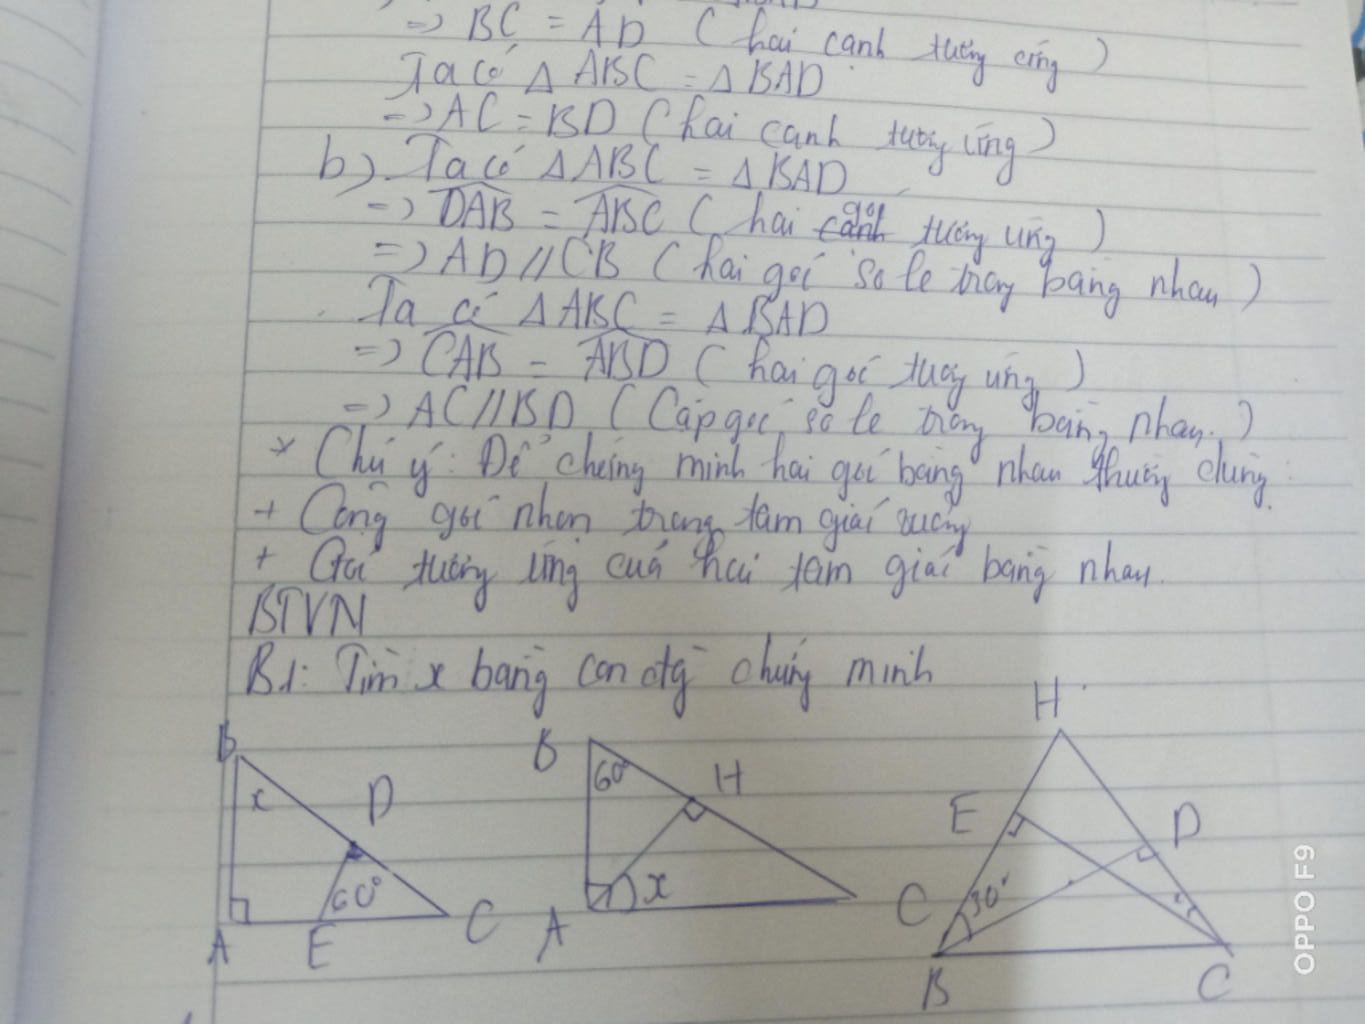 => BC = AD (hai cạnh tương ứng)
Ta có Δ ABC = Δ BAD
=> AC = BD (hai cạnh tương ứng)
b) Ta có Δ ABC = Δ BAD
=> DAB = ABC (hai góc tương ứng)
=> AD // CB (hai goi so le trong bằng nhau)
Ta có Δ ABC = Δ BAD
=> CAB = ABD (hai goc tương ứng)
=> AC // BD (Cặp goc so le trong bằng nhau.)
* Chú ý: Để chứng minh hai goi bằng nhau thường dùng:
+ Cộng goi nhọn trong tam giai vuông
+ Goi tương ứng cuả hai tam giai bằng nhau.
BTVN
B1: Tìm x bằng con đg chứng minh
B x D 60° A E C
B 60° H x A C
H E D 30° B C
OPPO F9